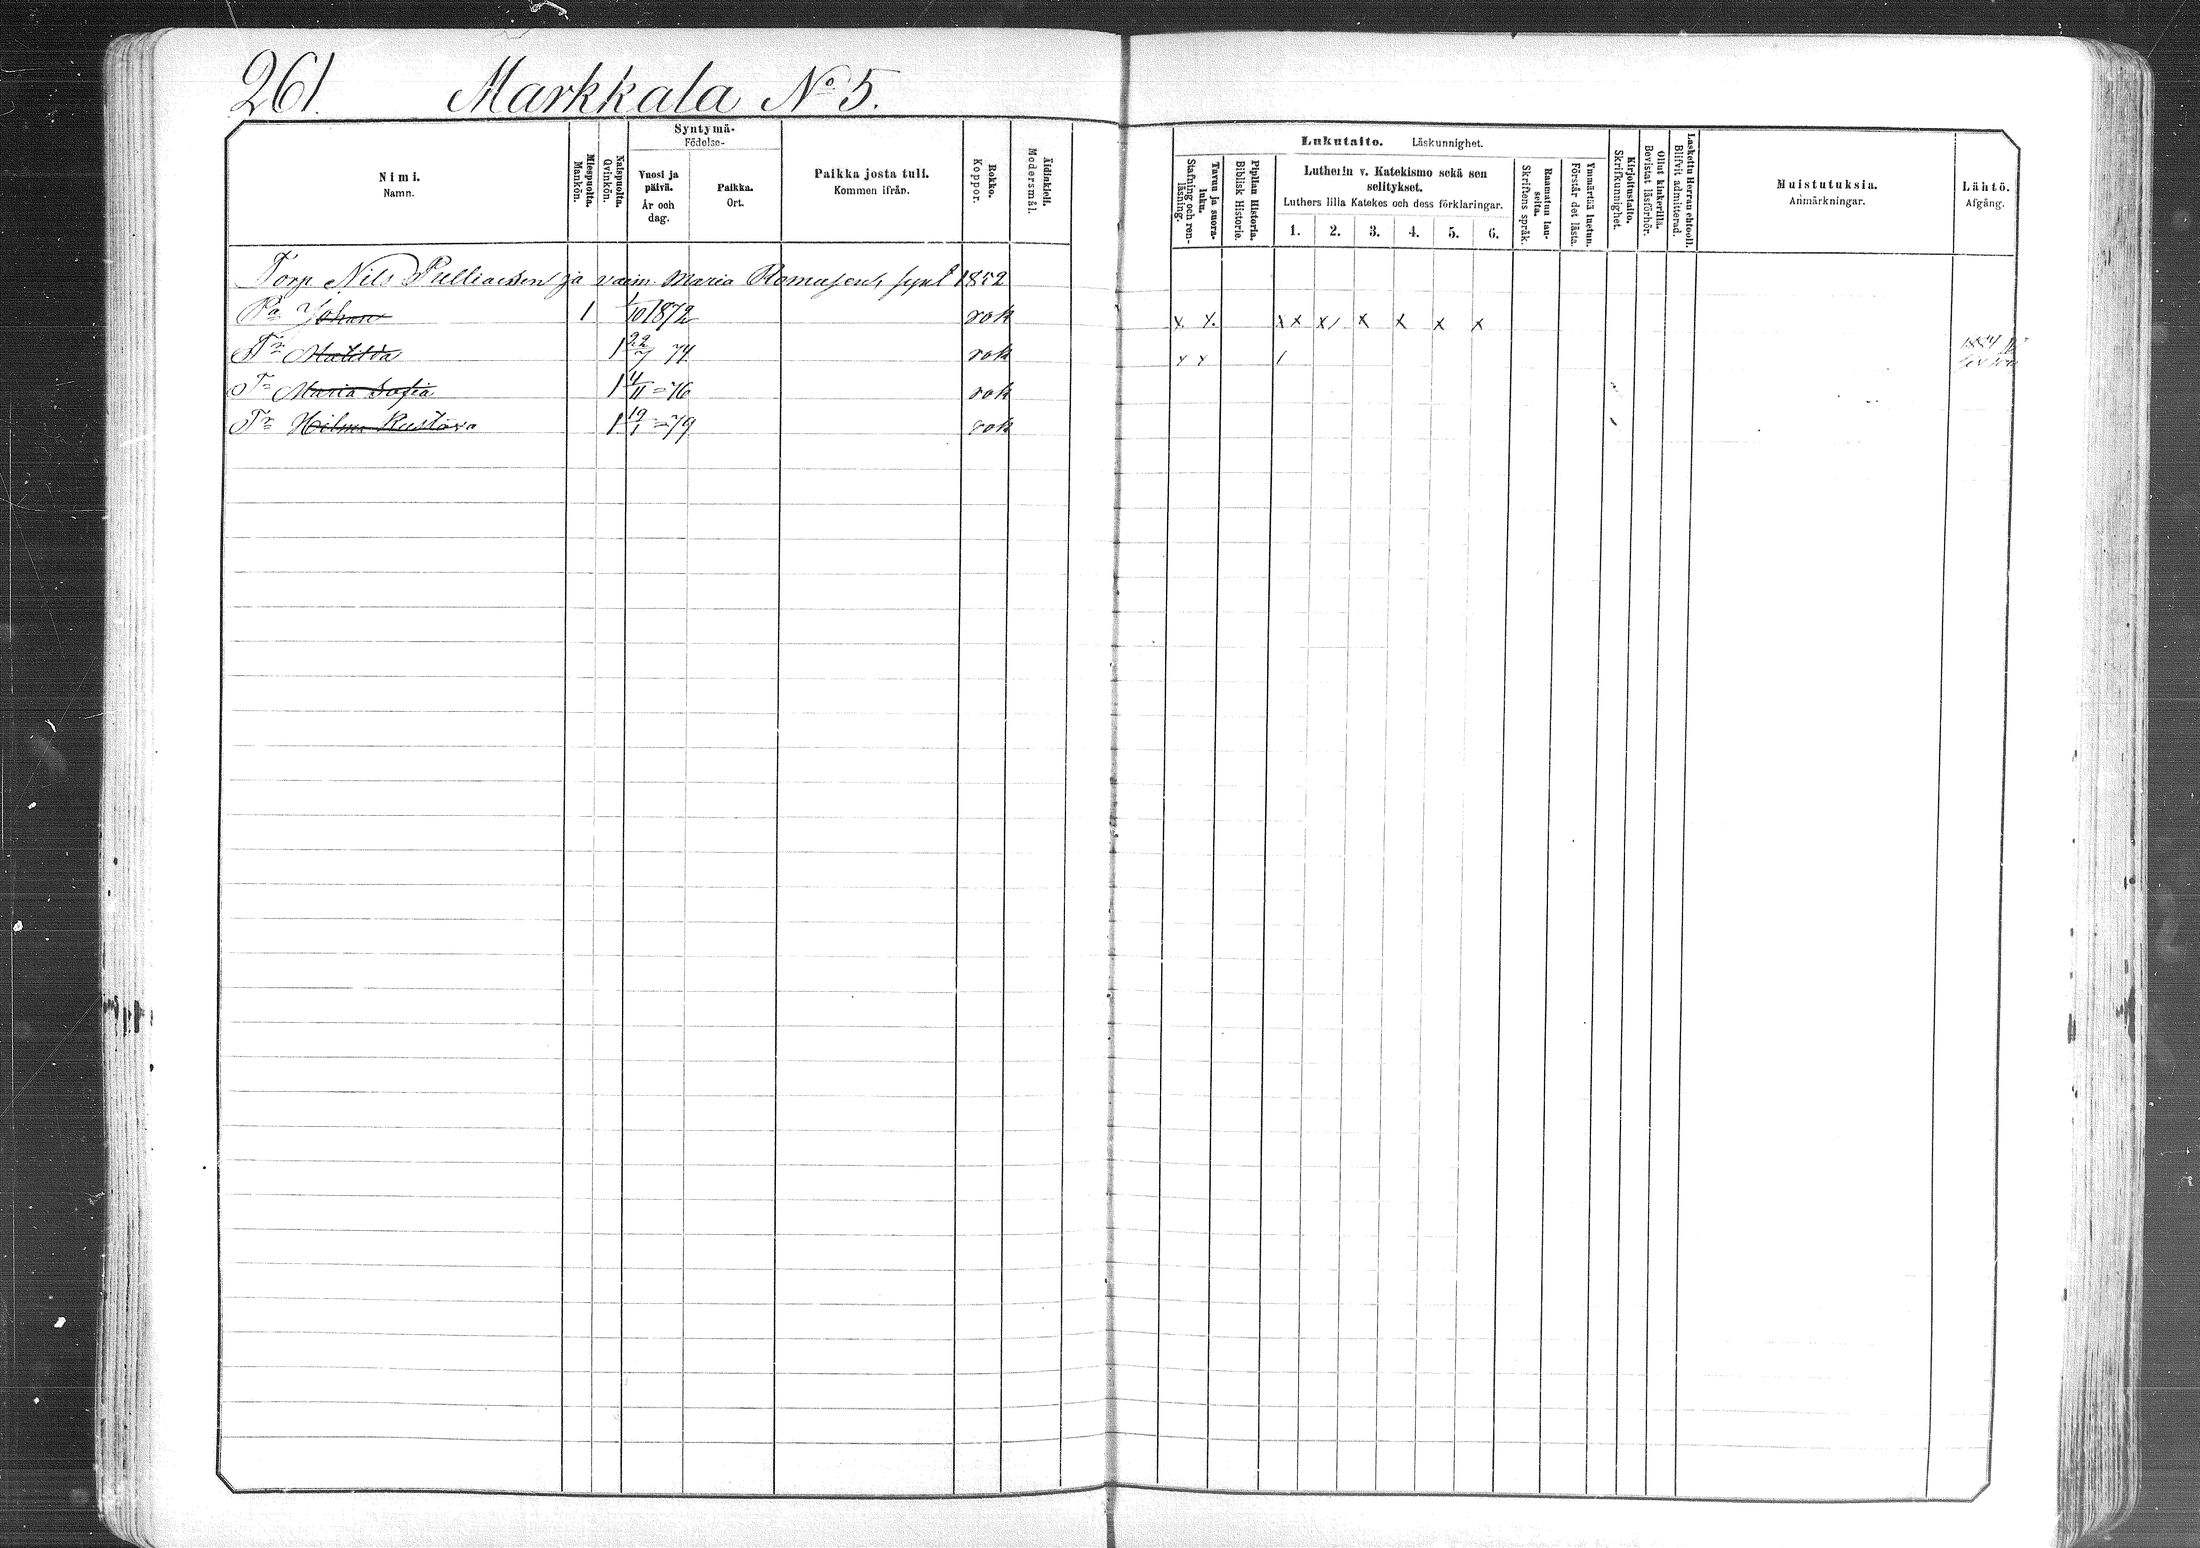 261. Markkala No 5.
Nimi.
Namn.
Miespuolta.
Mankön.
Naispuolta.
Qvinkön.
Syntymä-
Födelse-
Vuosi ja
päivä.
År och
dag.
Paikka.
Ort.
Paikka josta tuli.
Kommen ifrån.
Rokko.
Koppor.
Äidinkieli.
Modersmål.
Torp Nils Pulliainen ja vaim. Maria Romusen, synt 1852
Pa Johan 1 1/10 1872 rok
Tr Matilda 1 22/7 74 rok
Tr Maria Sofia 1 4/11 = 76 rok
Tr Hilma Kustava 1 19/1 = 79 rok
Lukutaito. Läskunnighet.
Tavuu ja suora-
luku.
Stafning och ren-
läsning.
Piplian Historia.
Biblisk Historie.
Lutherin v. Katekismo sekä sen
selitykset.
Luthers lilla Katekes och dess förklaringar.
1. 2. 3. 4. 5. 6.
Raamatun lau-
seita.
Skriftens språk.
Ymmärtää luetun.
Förstår det lästa.
Kirjoitustaito.
Skrifkunnighet.
Ollut kinkerillä.
Bevistat läsförhör.
Laskettu Herran ehtooll.
Blifvit admitterad.
Muistutuksia.
Anmärkningar.
Lähtö.
Afgång.
x x. x x x / x x x x
x x /
1884